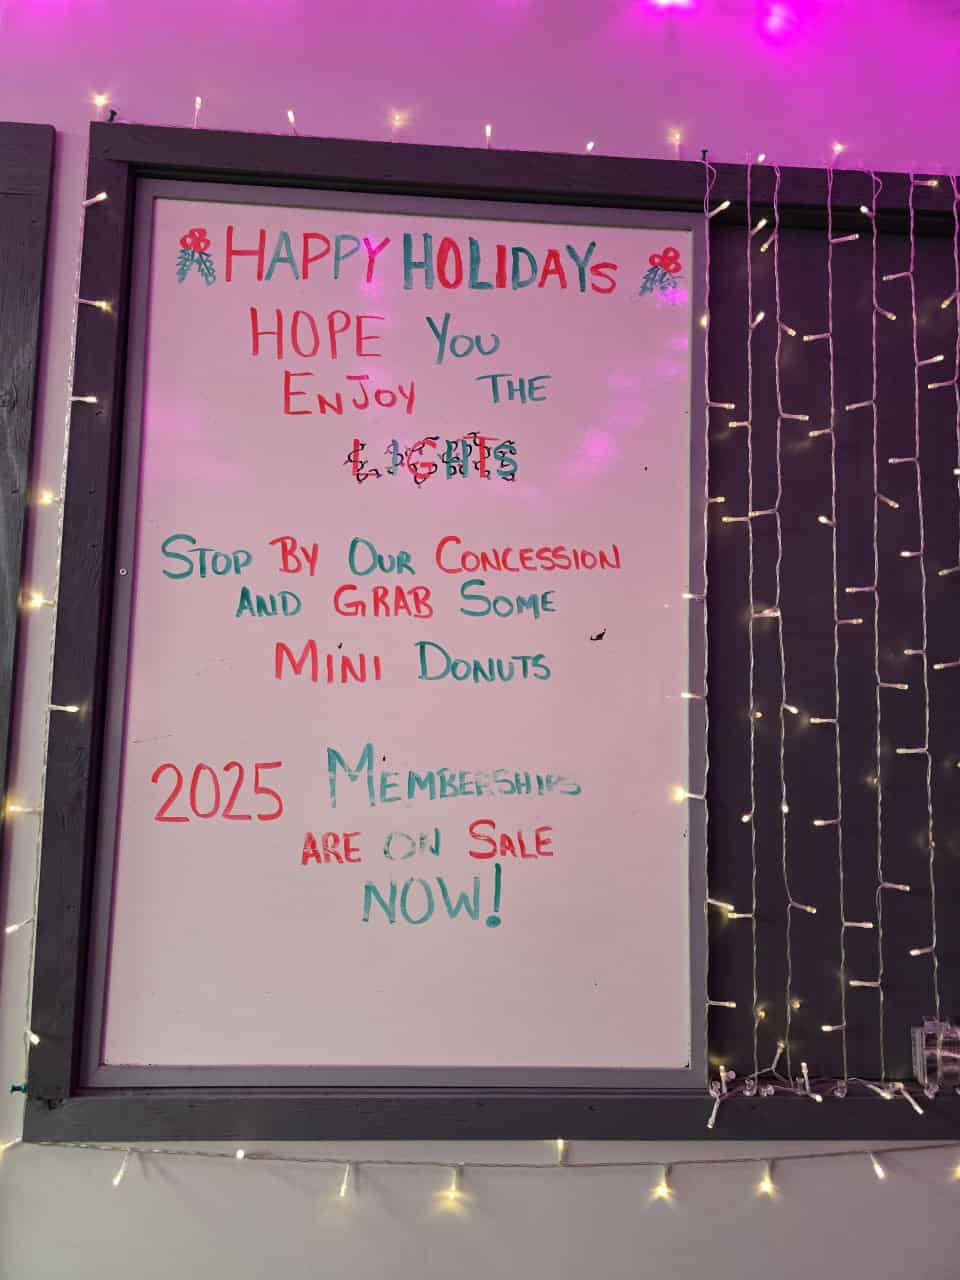 HAPPY HOLIDAYS
HOPE YOU
ENJOY THE
LIGHTS
STOP BY OUR CONCESSION
AND GRAB SOME
MINI DONUTS
2025 MEMBERSHIPS
ARE ON SALE
NOW!